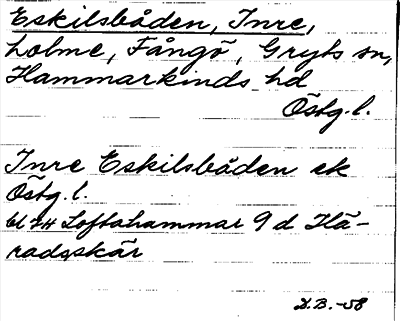 Eskilsbåden, Inre,
holme, Fångö, Gryts sn,
Hammarkinds hd
Östg.l.
Inre Eskilsbåden ek
Östg.l.
bl 44 Loftahammar 9 d Hä-
radsskär
D.B.-58